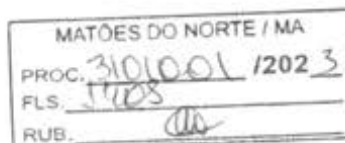 MATÕES DO NORTE / MA
PROC. 3101001 /2023
FLS.
RUB.